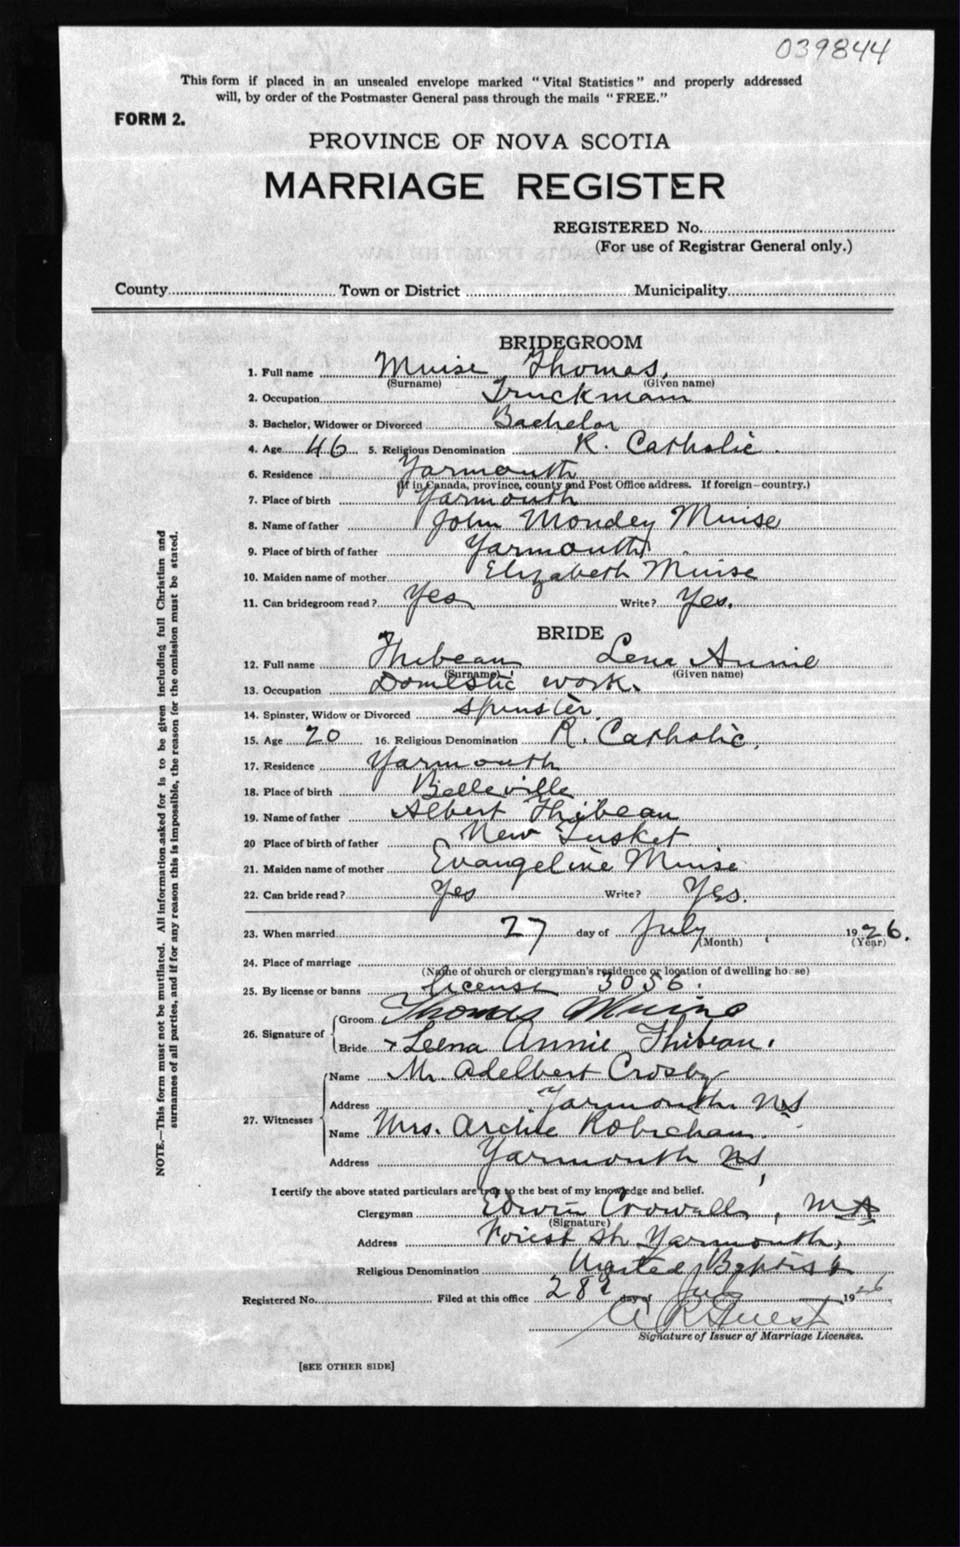 039844
This form if placed in an unsealed envelope marked "Vital Statistics" and properly addressed
will, by order of the Postmaster General pass through the mails "FREE."
FORM 2.
PROVINCE OF NOVA SCOTIA
MARRIAGE REGISTER
REGISTERED No.
(For use of Registrar General only.)
County Town or District Municipality
BRIDEGROOM
1. Full name Muise Thomas,
(Surname) (Given name)
2. Occupation Truckman
3. Bachelor, Widower or Divorced Bachelor
4. Age 46 5. Religious Denomination R. Catholic.
6. Residence Yarmouth
(If in Canada, province, county and Post Office address. If foreign—country.)
7. Place of birth Yarmouth
8. Name of father John Mondey Muise
9. Place of birth of father Yarmouth
10. Maiden name of mother Elizabeth Muise
11. Can bridegroom read? Yes Write? Yes.
BRIDE
12. Full name Thibeau Lena Annie
(Surname) (Given name)
13. Occupation Domestic work.
14. Spinster, Widow or Divorced Spinster
15. Age 20 16. Religious Denomination R. Catholic,
17. Residence Yarmouth
18. Place of birth Belleville
19. Name of father Albert Thibeau
20 Place of birth of father New Tusket
21. Maiden name of mother Evangeline Muise
22. Can bride read? Yes Write? Yes.
23. When married 27 day of July 1926.
(Month) (Year)
24. Place of marriage
(Name of church or clergyman's residence or location of dwelling house)
25. By license or banns License 3056.
26. Signature of Groom Thomas Muise
Bride x Leena Annie Thibeau.
27. Witnesses Name Mr. Adelbert Crosby
Address Yarmouth NS
Name Mrs. Archie Robicheau.
Address Yarmouth NS
I certify the above stated particulars are true to the best of my knowledge and belief.
Clergyman Edwin Crowell, MA
(Signature)
Address Forest St Yarmouth,
Religious Denomination United Baptist
Registered No. Filed at this office 28 day of July 1926
A R Guest
Signature of Issuer of Marriage Licenses.
[SEE OTHER SIDE]
NOTE.—This form must not be mutilated. All information asked for is to be given including full Christian and
surnames of all parties, and if for any reason this is impossible, the reason for the omission must be stated.